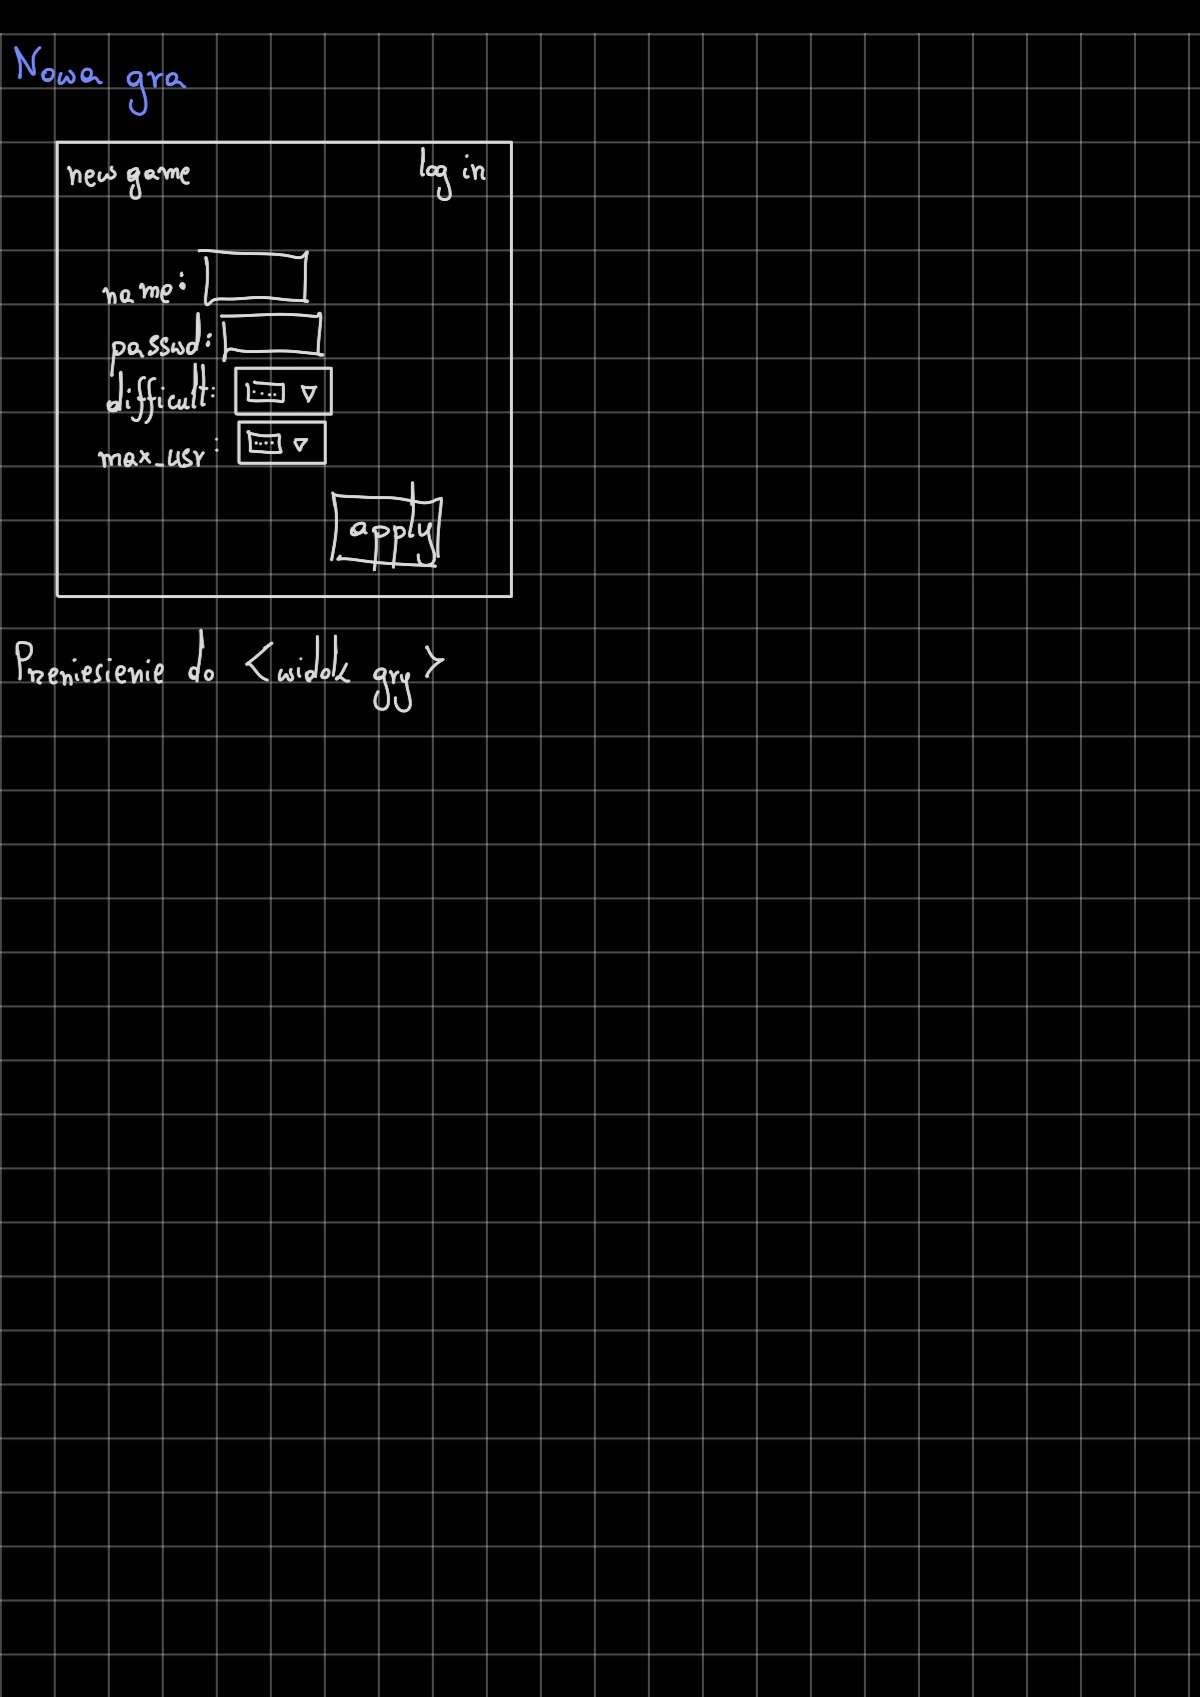 Nowa gra
new game log in
name:
passwd:
difficult:
max_usr:
apply
Przeniesienie do <widok gry>